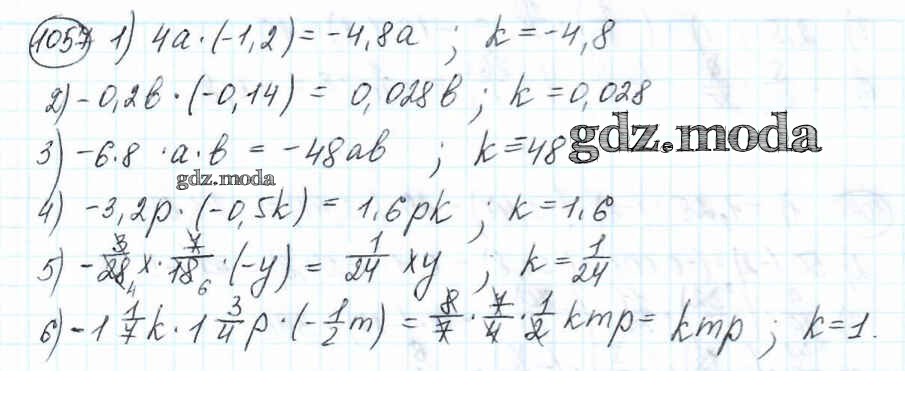 1057 1) 4a·(-1,2)=-4,8a ; k=-4,8
2) -0,2b·(-0,14) = 0,028b ; k=0,028
3) -6·8 ·a·b = -48ab ; k=48
gdz.moda
gdz.moda
4) -3,2p·(-0,5k) = 1,6pk ; k=1,6
5) -3/28 x · 7/18 ·(-y) = 1/24 xy ; k=1/24
4 6
6) -1 1/7 k · 1 3/4 p · (-1/2 m) = 8/7 · 7/4 · 1/2 kmp = kmp ; k=1.